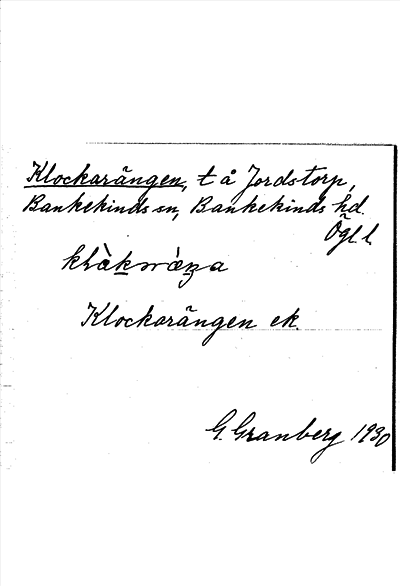 Klockarängen, t å Jordstorp,
Bankekinds sn, Bankekinds hd.
Ögl. l.
Klockarängen ek.
G. Granberg 1930